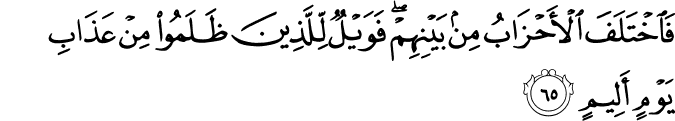 فَٱخۡتَلَفَ ٱلۡأَحۡزَابُ مِنۢ بَيۡنِهِمۡۖ فَوَيۡلٞ لِّلَّذِينَ ظَلَمُواْ مِنۡ عَذَابِ
يَوۡمٍ أَلِيمٍ ٦٥